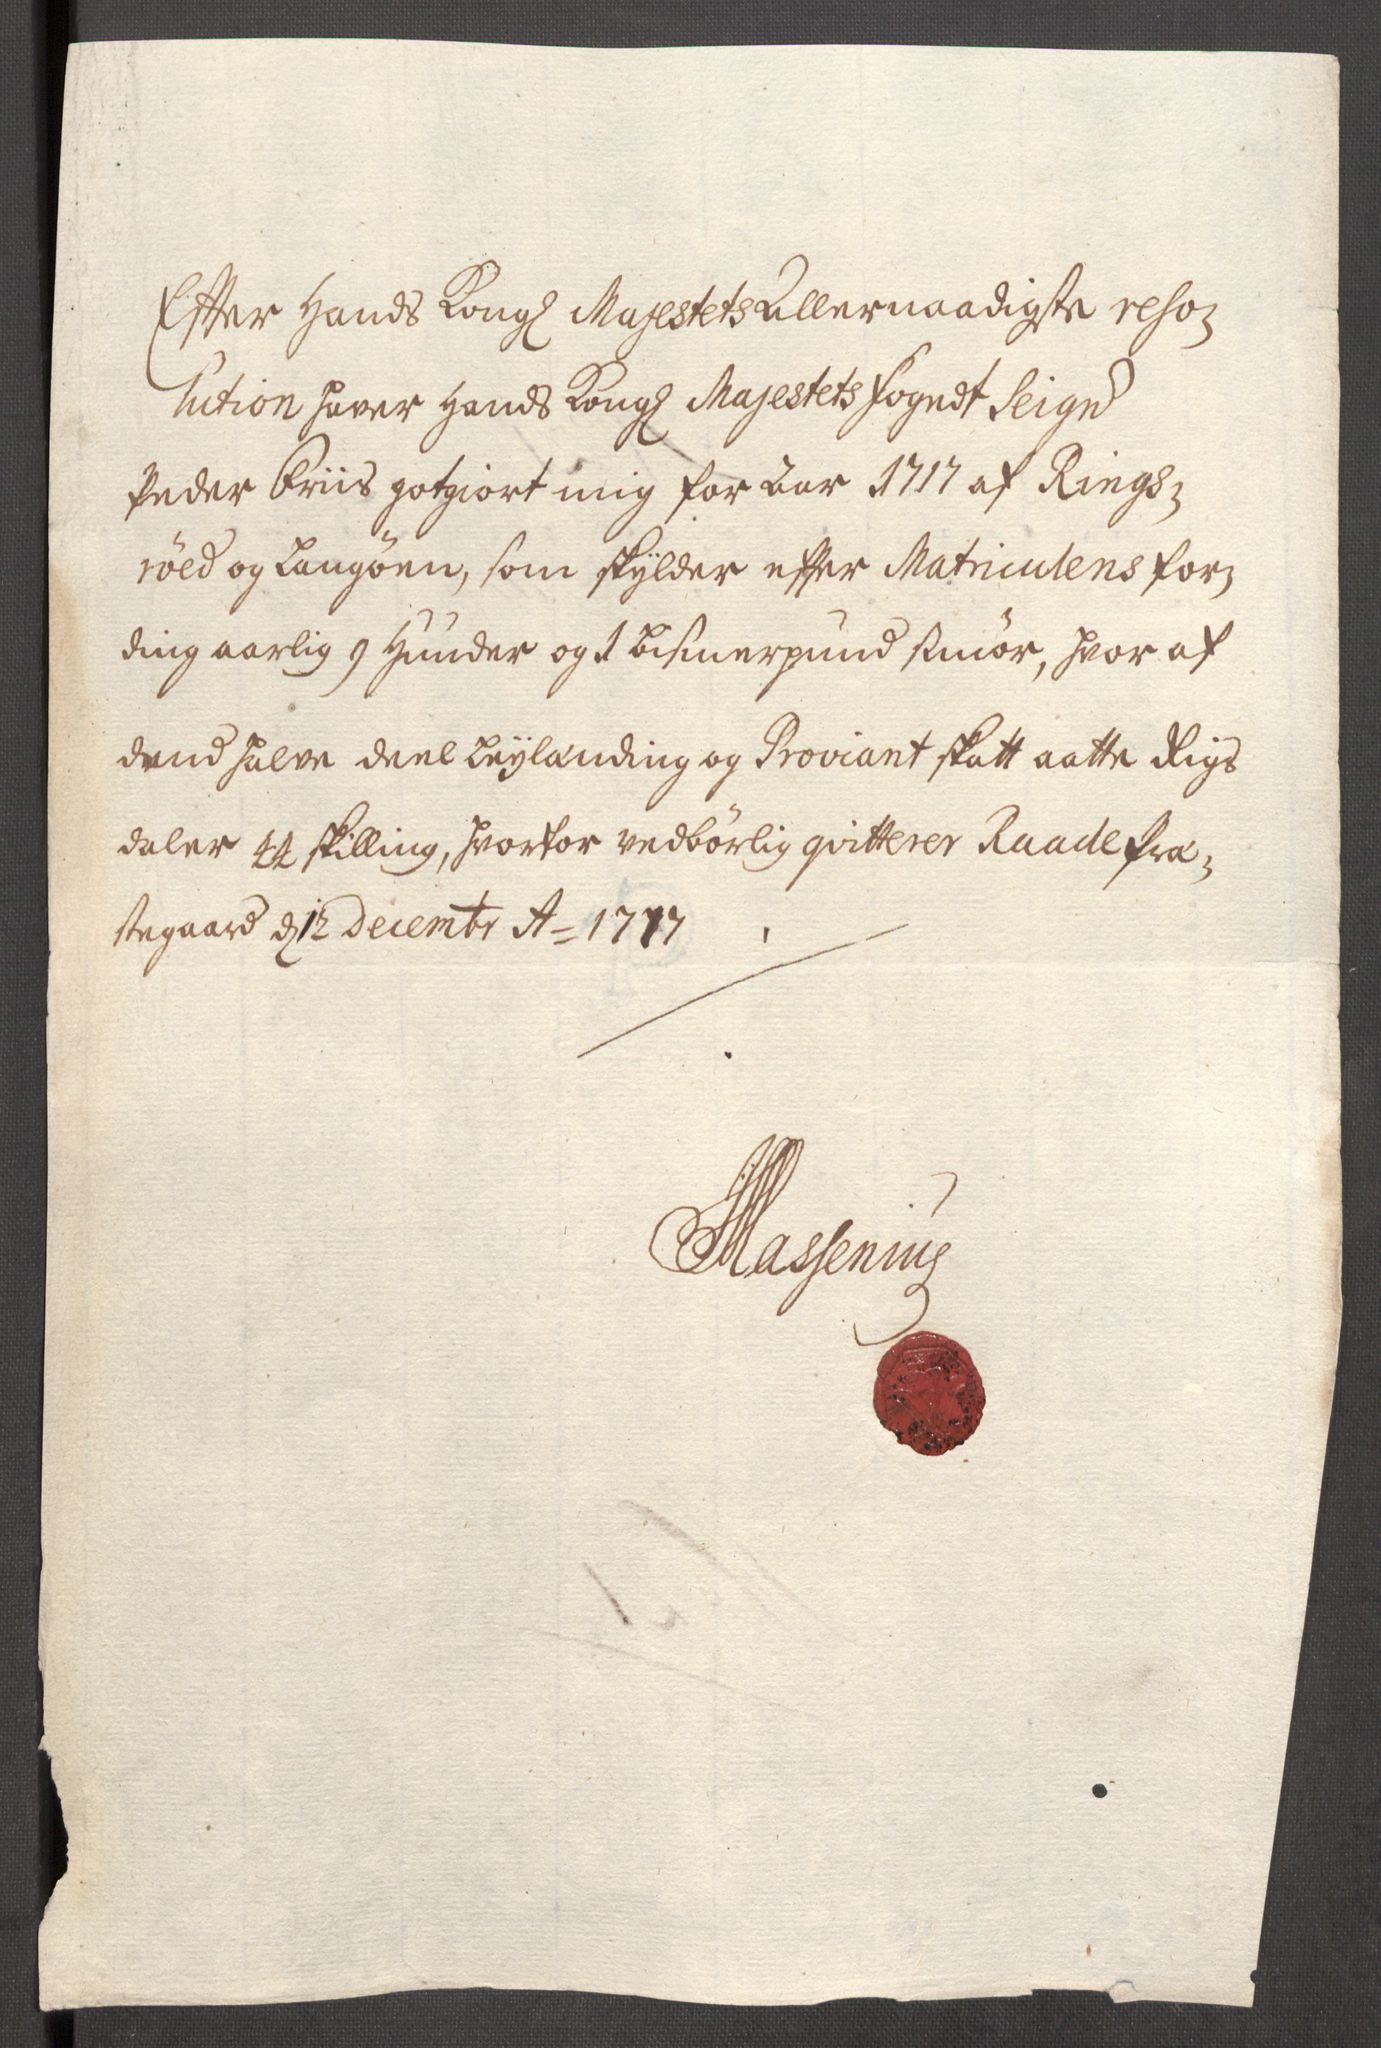 Efter Hands Kongl Majestets Allernaadigste reso-
lution haver Hands Kongl Majestets fogedt Seigr
Peder Friis gotgiort mig for Aar 1717 af Rings-
röed og Langöen, som skÿlder efter Matriculens for-
ding aarlig 9 Hunder og 1 bismerpund smör, hvor af
dend halve deel Leÿlænding og Proviant skatt aatte Rigs
daler 44 skilling, hvorfor vedbörlig qvitterer Raade Præ-
stegaard d 12 Decembr A= 1717
Massenius